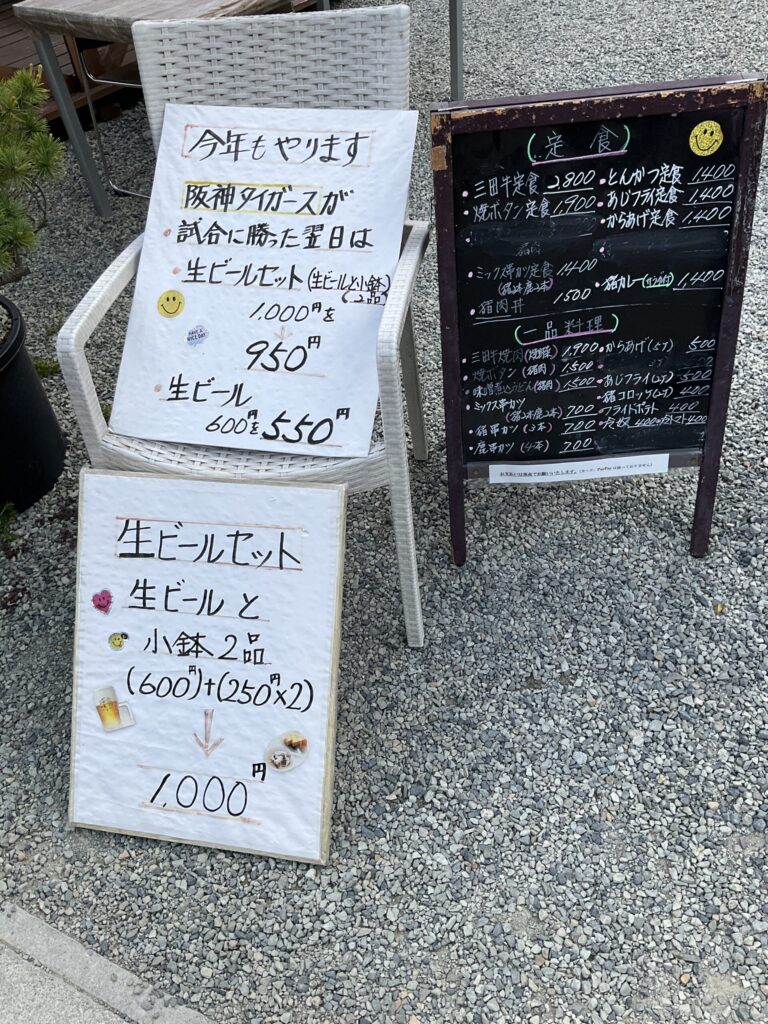 今年もやります
阪神タイガースが
・試合に勝った翌日は
・生ビールセット(生ビールと小鉢2品)
1,000円を
↓
950円
・生ビール
600円を550円
HAVE A NICE DAY
生ビールセット
生ビールと
小鉢2品
(600円)+(250円×2)
↓
1,000円
(定食)
・三田牛定食 2,800
・焼ボタン定食 1,900
・ミックス串かつ定食 1400
(猪2本鹿2本)
・猪肉丼 1500
・とんかつ定食 1400
・あじフライ定食 1,400
・からあげ定食 1,400
・猪カレー 1,400
(一品料理)
・三田牛焼肉 1,900
・焼ボタン(猪肉) 1,500
(猪肉) 1,500
・ミックス串カツ
(猪2本鹿2本) 700
・猪串カツ(3本) 700
・鹿串カツ(4本) 700
・からあげ(5ケ) 500
・あじフライ 500
・猪コロッケ 400
・フライドポテト 400
400 トマト400
お支払いは現金でお願いいたします。(カード、PayPay は扱っておりません)